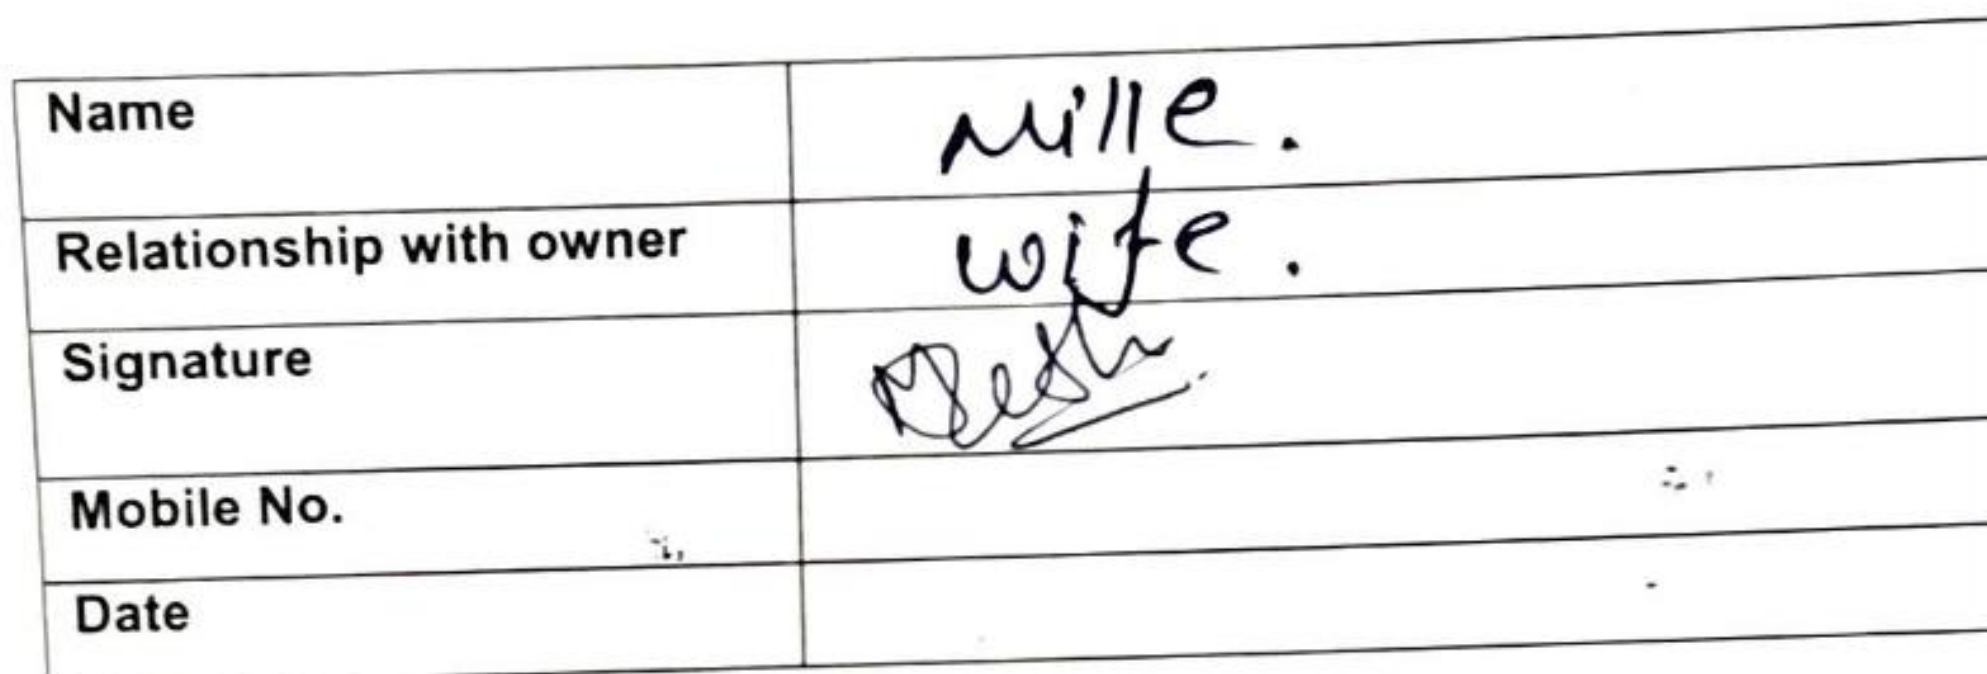 Name Mille.
Relationship with owner wife.
Signature
Mobile No.
Date